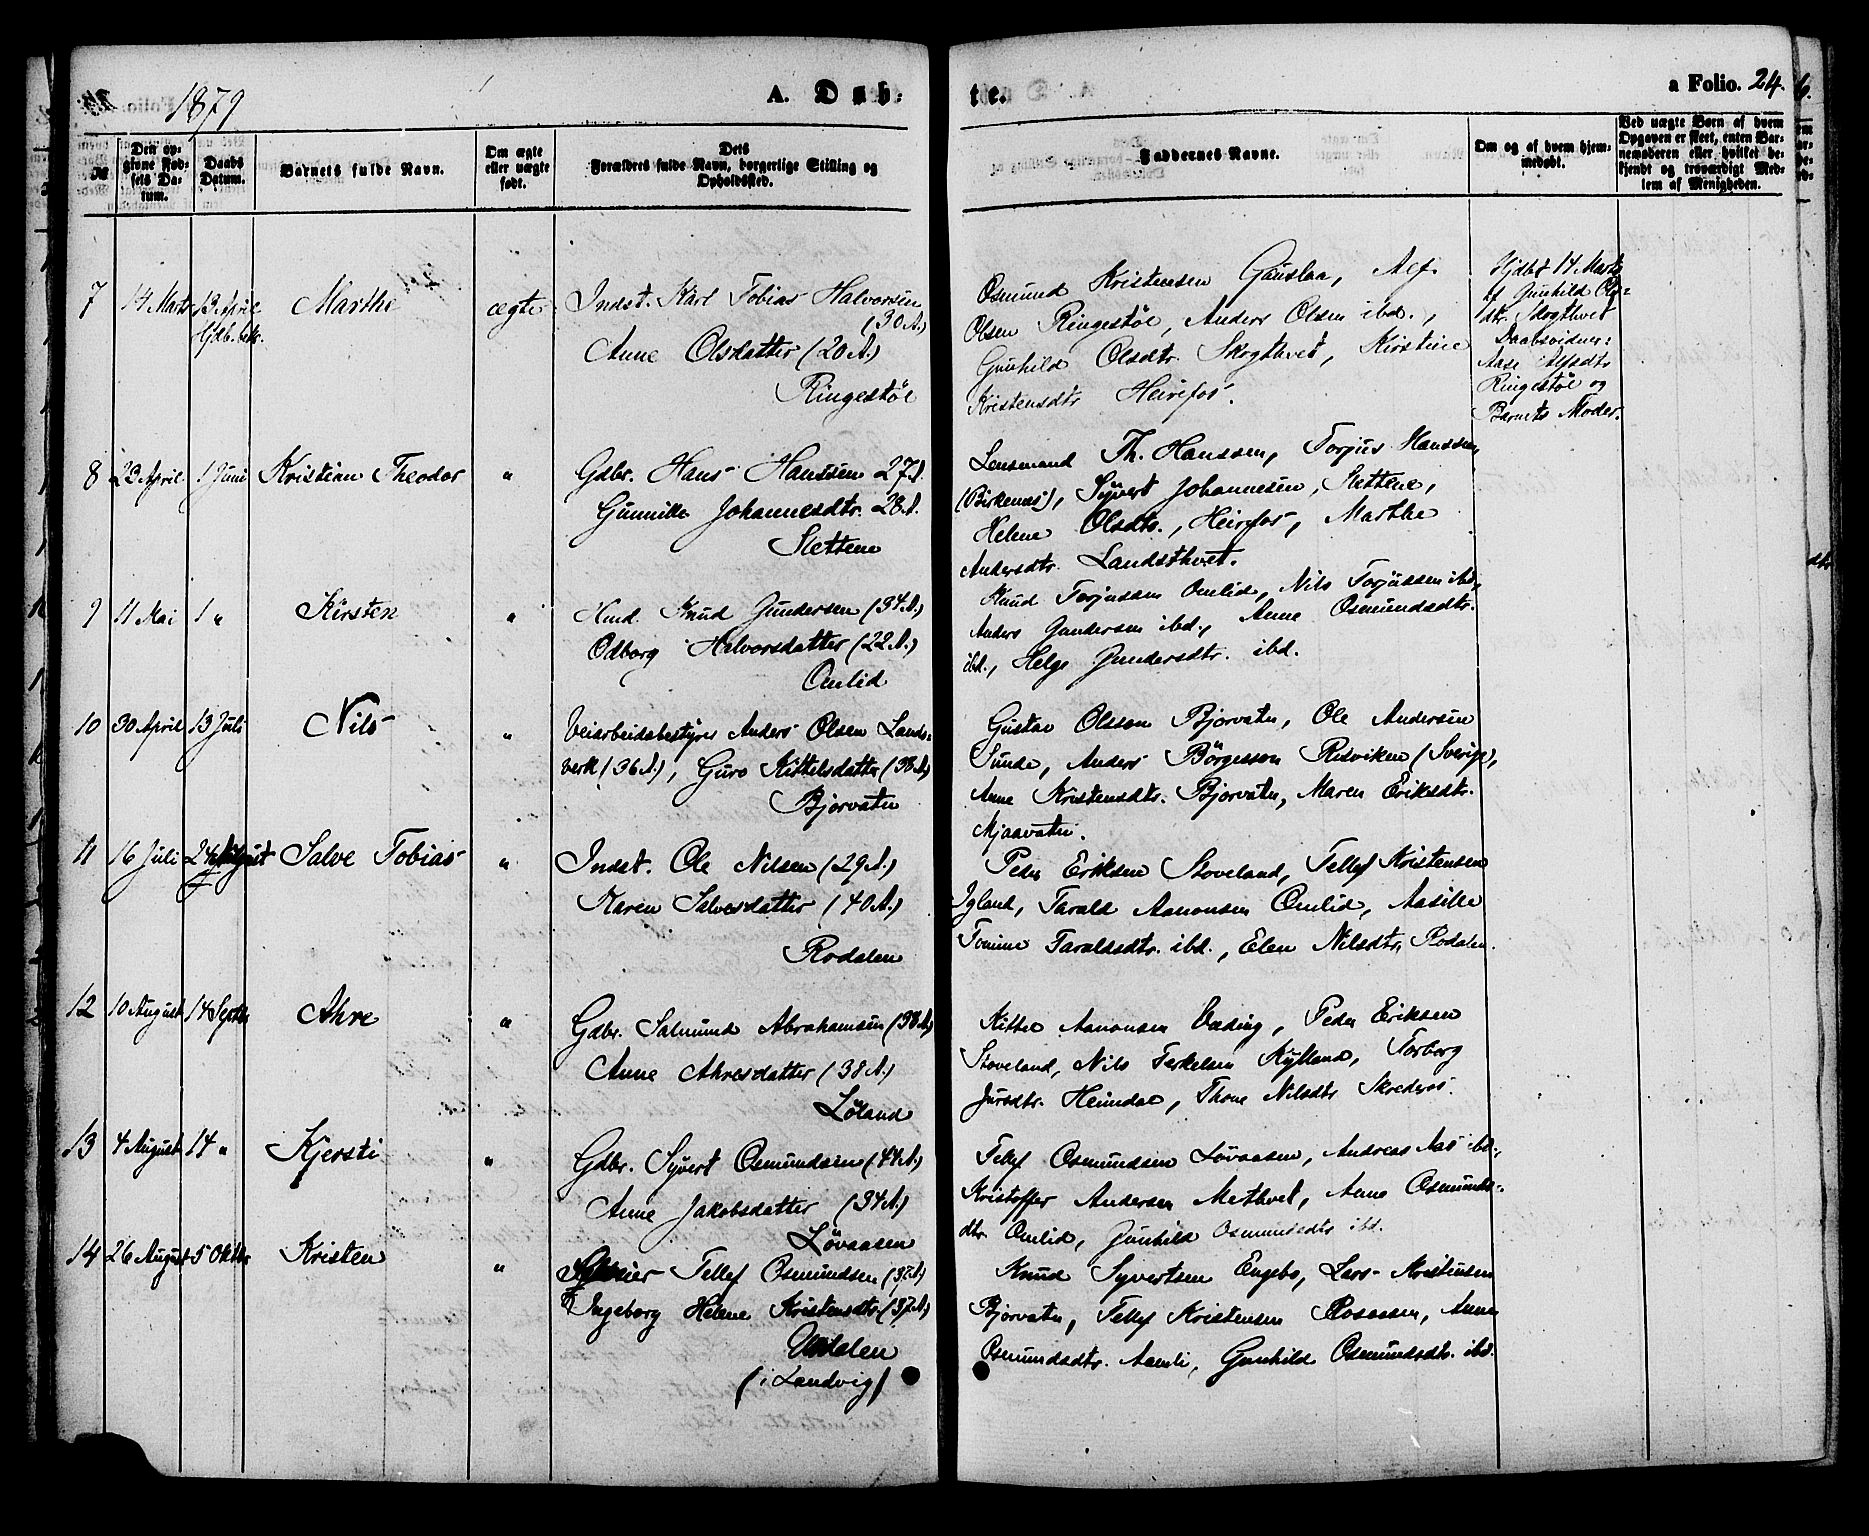 1879
A. Døb-
te.
a Folio. 24.
№
Den op-
givne Fød-
sels Da-
tum.
Daabs
Datum.
Barnets fulde Navn.
Om ægte
eller uægte
født.
Dets
Forældres fulde Navn, borgerlige Stilling og
Opholdssted.
Faddernes Navne.
Om og af hvem hjem-
medøbt.
Ved uægte Børn af hvem
Opgaven er skeet, enten Bar-
nemoderen eller hvilket be-
kjendt og troværdigt Med-
lem af Menigheden.
7 14 Marts 13 April Marthe ægte Indst. Karl Tobias Halvorsen
Hjdb. bekr. (30 A.)
Anne Olsdatter (20 A.)
Ringestøl
Osmund Kristensen Gauslaa, Alf
Olsen Ringestøl, Anders Olsen ibd.,
Gunhild Olsdtr. Skogthvet, Kirstine
Kristensdtr Heirefos.
Hjdbt 14 Marts
af Gunhild Ols-
dtr. Skogthvet
Daabsvidner:
Aase Alfsdtr
Ringestøl og
Barnets Moder.
8 23 April 1 Juni Kristian Theodor " Gdbr. Hans Hanssen 27 A.
Gunnille Johannesdtr. 28 A.
Slettene
Lensmand Th. Hanssen, Torjus Hanssen
(Birkenes), Syvert Johannesen, Slettene,
Helene Olsdtr., Heirefos, Marthe
Andersdtr. Landsthvet.
9 11 Mai 1 " Kirsten " Hmd. Knud Gundersen (34 A.)
Odborg Halvorsdatter (22 A.)
Omlid
Knud Torjussen Omlid, Nils Torjussen ibd.,
Anders Gundersen ibd., Anne Osmundsdtr.
ibd., Helge Gundersdtr. ibd.
10 30 April 13 Juli Nils " Veiarbeidsbestyrer Anders Olsen Lands-
verk (36 A.), Guro Kittelsdatter (38 A.)
Bjorvatn
Gustav Olsson Bjorvatn, Ole Andersen
Sunde, Anders Börgesson Risviken (Sverige),
Anne Kristensdtr. Bjorvatn, Maren Eriksdtr.
Mjaavatn.
11 16 Juli 24 August Salve Tobias " Indst. Ole Nilsen (29 A.)
Karen Salvesdatter (40 A.)
Rodalen
Peder Eriksen Stoveland, Tellef Kristensen
Igland, Tarald Aanonsen Omlid, Aasille
Tomine Taraldsdtr. ibd., Elen Nilsdtr, Rodalen.
12 10 August 14 Septbr Ahre " Gdbr. Salmund Abrahamsen (38 A.)
Anne Ahresdatter (38 A.)
Løland
Kittel Aanonsen Væding, Peder Eriksen
Stoveland, Nils Terkelsen Kylland, Torborg
Jursdtr. Heimdal, Thone Nilsdtr Skrederos.
13 4 August 14 " Kjersti " Gdbr. Syvert Osmundsen (44 A.)
Anne Jakobsdatter (34 A.)
Løvaasen
Tellef Osmundsen Løvaasen, Andreas Aas ibd.,
Kristoffer Andersen Mesthvet, Anne Osmunds-
dtr. Omlid, Gunhild Osmundsdtr ibd.
14 26 August 5 Oktbr Kristen " Tellef Osmundsen (37 A.)
Ingeborg Helene Kristensdtr. (37 A.)
Uddalen
(i Landvig)
Knud Syvertsen Engebo, Lars Kristensen
Bjorvatn, Tellef Kristensen Rosaasen, Anne
Osmundsdtr. Aamli, Gunhild Osmundsdtr. ibd.